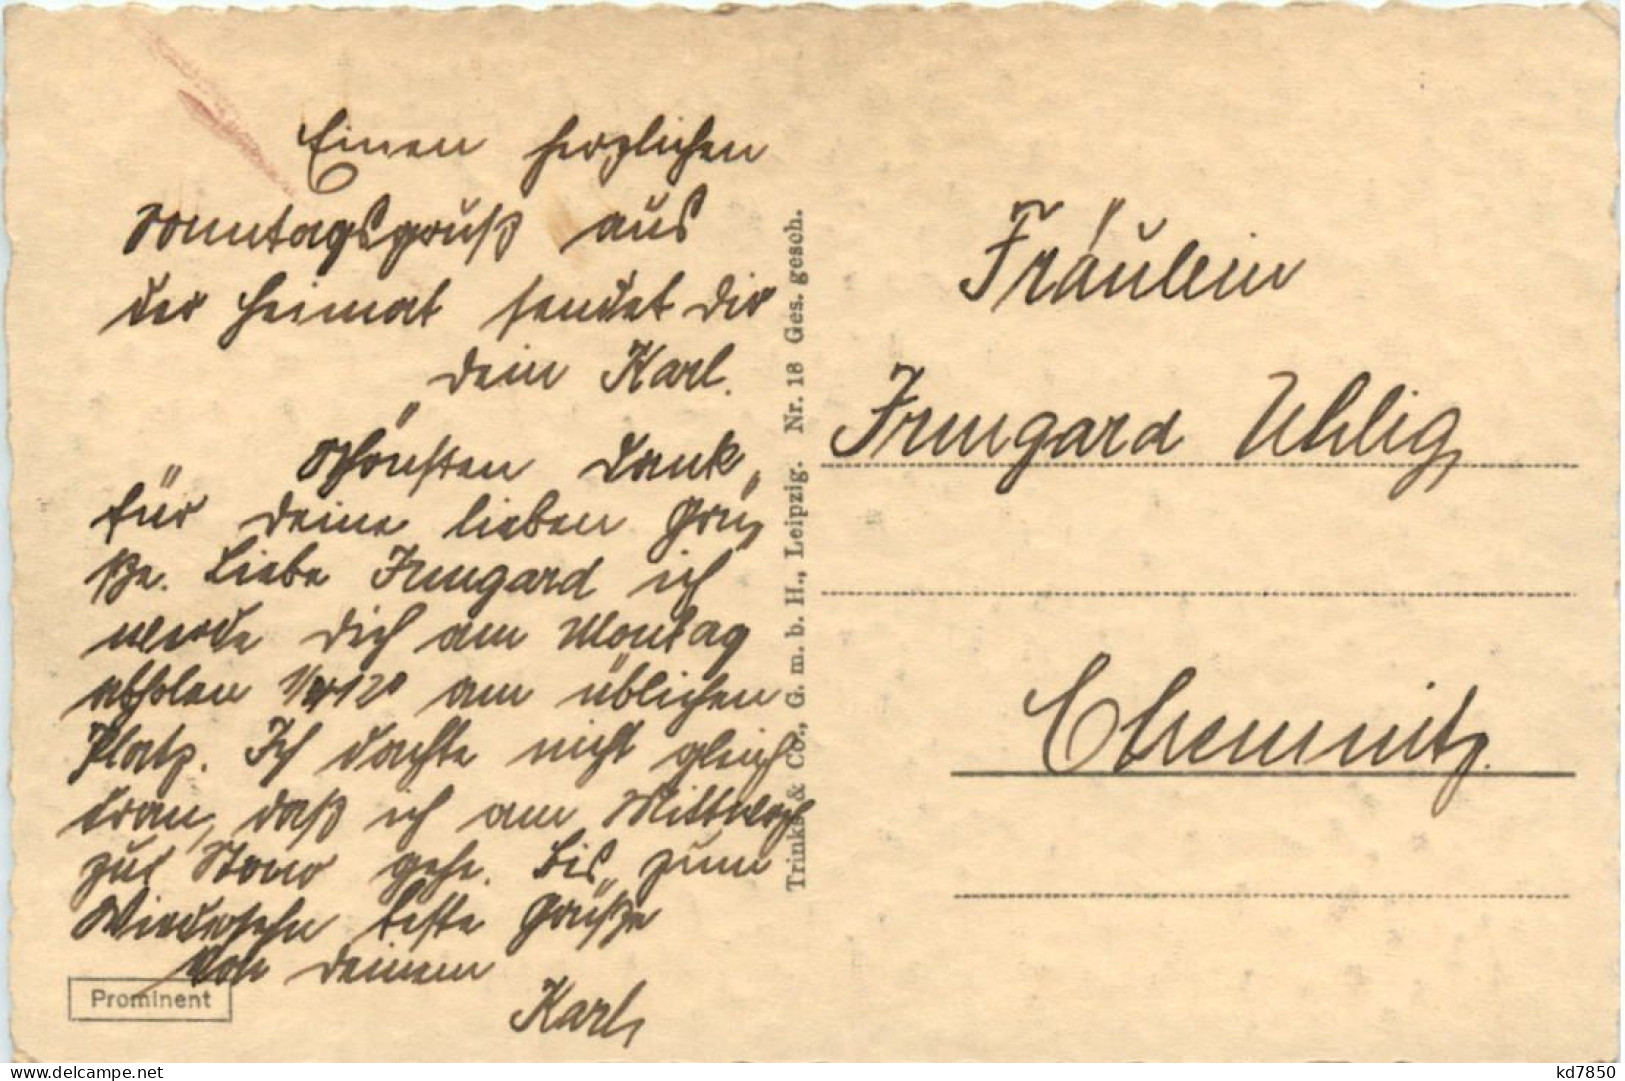 Einen herzlichen
Sonntagsgruß aus
der Heimat sendet Dir
Dein Karl.
Schönsten Dank
für Deine lieben Grü„
ße. Liebe Irmgard ich
werde Dich am Montag
abholen am üblichen
Platz. Ich dachte nicht gleich
dran, daß ich am Mittwoch
zur gehe. Bis zum
Wiedersehn beste Grüße
von Deinem
Karl,
Prominent
Trinks & Co., G. m. b. H., Leipzig. Nr. 18 Ges. gesch.
Fräulein
Irmgard Uhlig,
Chemnitz.
www.delcampe.net
kd7850